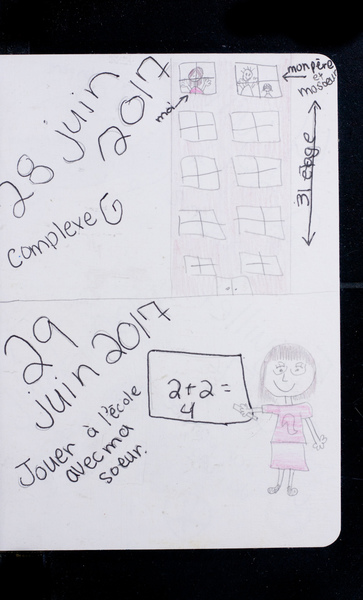 28 juin
2017
complexe G
moi
mon père
et
masoeur
31 étage
29
juin 2017
Jouer à l'école
avec ma
soeur.
2+2=
4